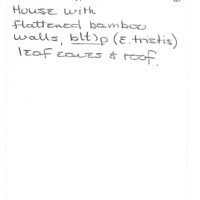 House with
flattened bamboo
walls, (E. tristis)
leaf eaves & roof.